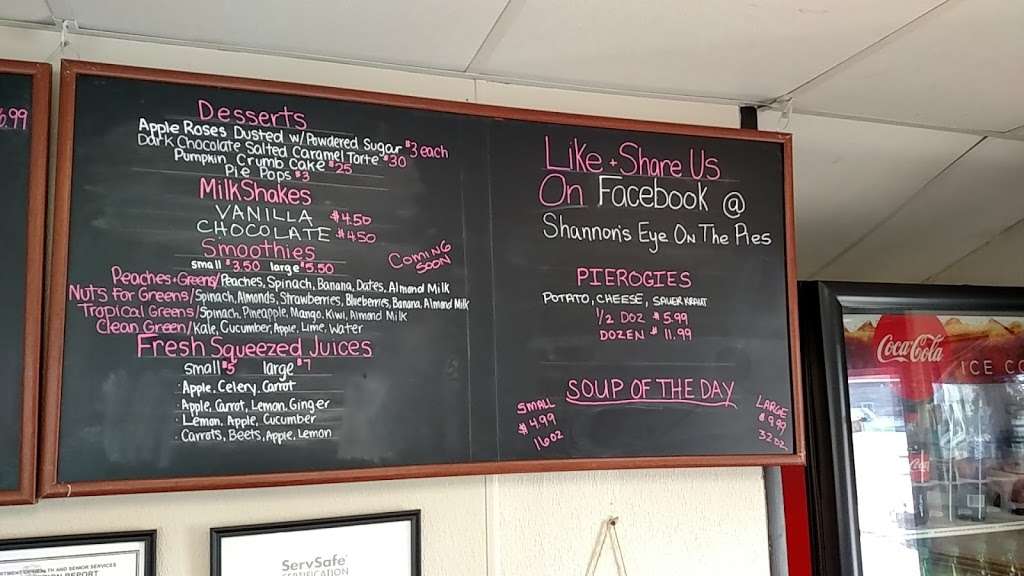 6.99
Desserts
Apple Roses Dusted w/Powdered Sugar $3 each
Dark Chocolate Salted Caramel Tarte $30
Pumpkin, Crumb Cake $25
Pie Pops $3
MilkShakes
VANILLA $4.50
CHOCOLATE $4.50
Smoothies
small $3.50 large $5.50
COMING SOON
Peaches + Greens/Peaches, Spinach, Banana, Dates, Almond Milk
Nuts For Greens/Spinach, Almonds, Strawberries, Blueberries, Banana, Almond Milk
Tropical Greens/Spinach, Pineapple, Mango, Kiwi, Almond Milk
Clean Green/Kale, Cucumber, Apple, Lime, Water
Fresh Squeezed Juices
small $5 large $7
· Apple, Celery, Carrot
· Apple, Carrot, Lemon, Ginger
· Lemon, Apple, Cucumber
· Carrots, Beets, Apple, Lemon
Like + Share Us
On Facebook @
Shannon's Eye On The Pies
PIEROGIES
POTATO, CHEESE, SAUER KRAUT
1/2 DOZ $5.99
DOZEN $11.99
SOUP OF THE DAY
SMALL
$4.99
16oz
LARGE
$9.99
32oz
Coca-Cola
ICE CO
TH AND SENIOR SERVICES
REPORT
ServSafe
CERTIFICATION